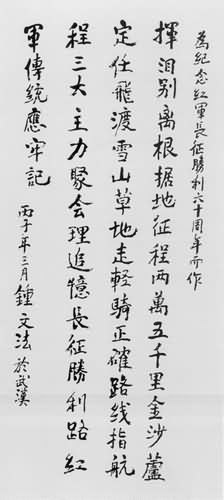 為纪念红軍長征勝利六十周年而作
揮泪别离根据地征程两萬五千里金沙蘆
定任飛渡雪山草地走輕騎正確路线指航
程三大主力聚会理追憶長征勝利路红
軍傳統應牢記
丙子年三月鍾文法於武漢